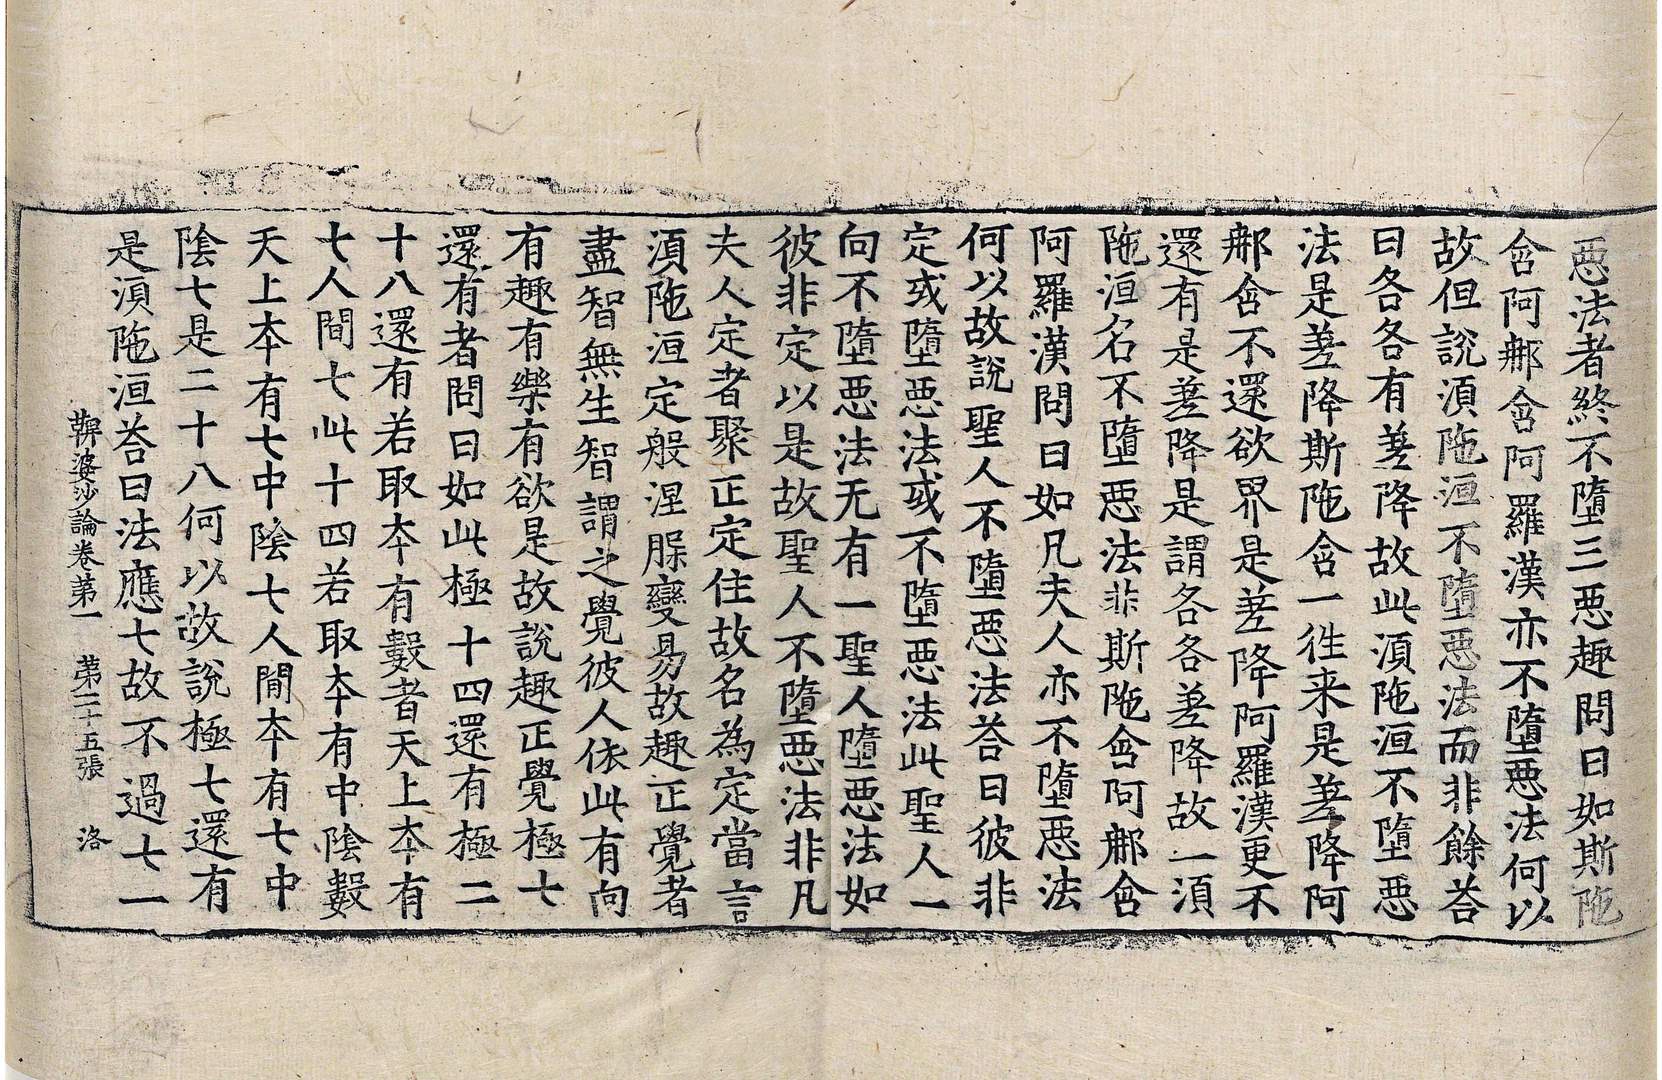 惡法者終不墮三惡趣問曰如斯陁
含阿那含阿羅漢亦不墮惡法何以
故但說湏陁洹不墮惡法而非餘荅
曰各各有差降故此湏陁洹不墮惡
法是差降斯陁含一徃来是差降阿
那含不還欲界是差降阿羅漢更不
還有是差降是謂各各差降故一湏
陁洹名不墮惡法非斯陁含阿那含
阿羅漢問曰如凡夫人亦不墮惡法
何以故說聖人不墮惡法荅曰彼非
定或墮惡法或不墮惡法此聖人一
向不墮惡法无有一聖人墮惡法如
彼非定以是故聖人不墮惡法非凡
夫人定者聚正定住故名為定當言
湏陁洹定般涅槃變易故趣正覺者
盡智無生智謂之覺彼人依此有向
有趣有樂有欲是故說趣正覺極七
還有者問曰如此極十四還有極二
十八還有若取夲有數者天上夲有
七人間七此十四若取夲有中陰數
天上夲有七中陰七人間夲有七中
陰七是二十八何以故說極七還有
是湏陁洹荅曰法應七故不過七一
鞞婆沙論卷第一 第二十五張 洛